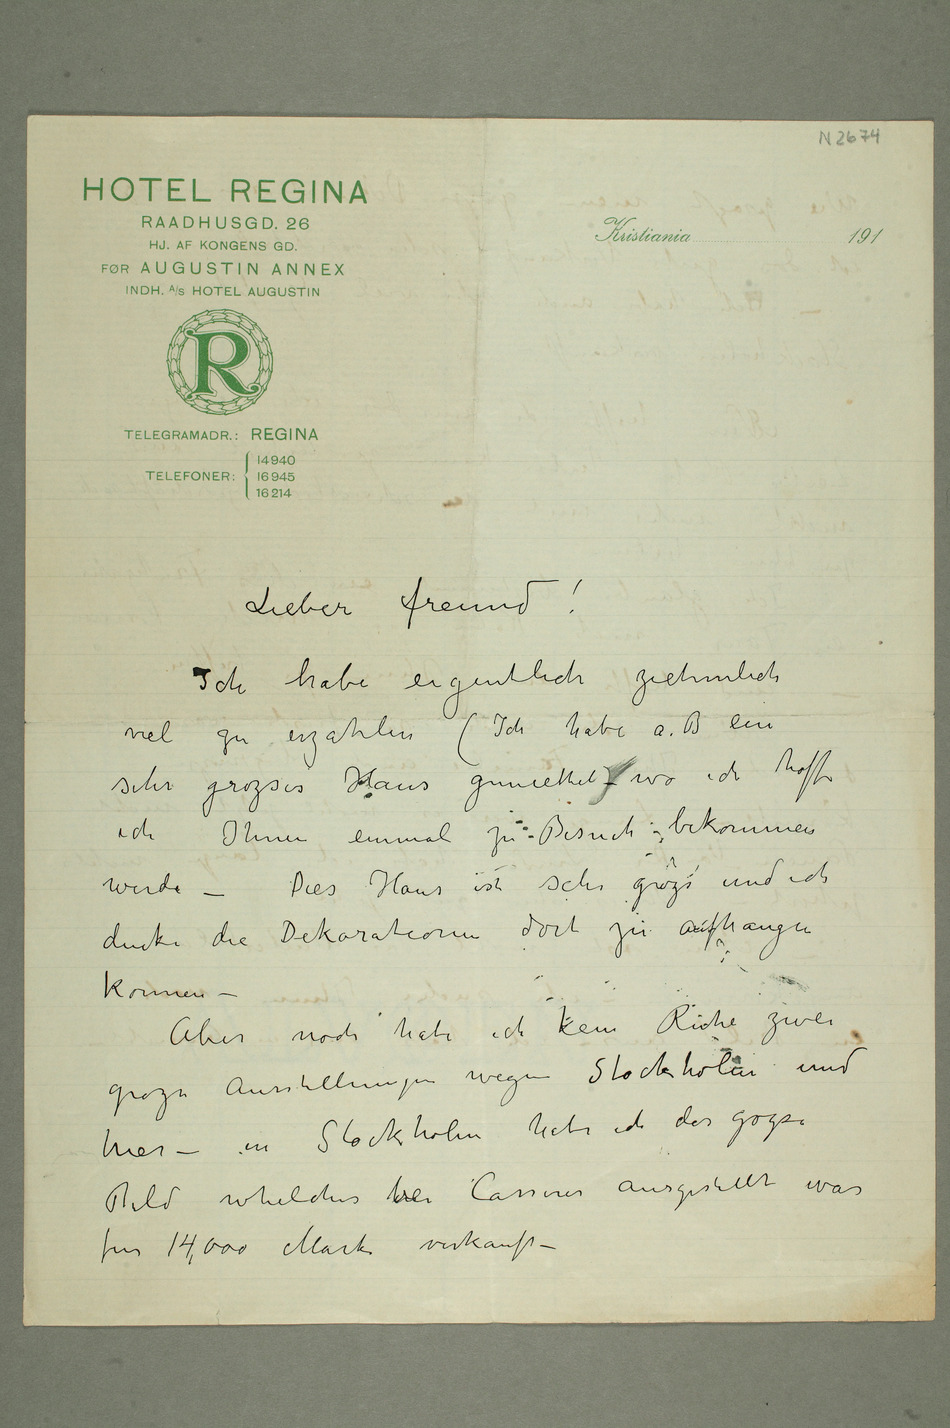 N 2674
HOTEL REGINA
RAADHUSGD. 26
HJ. AF KONGENS GD.
FØR AUGUSTIN ANNEX
INDH. A/S HOTEL AUGUSTIN
Kristiania 191
R
TELEGRAMADR.: REGINA
TELEFONER: 14940
16945
16214
Lieber Freund!
Ich habe eigentlich ziehmlich
viel zu erzahlen (Ich habe z.B ein
sehr grozses Haus gemiethet) – wo ich hoffe
ich Ihnen einmal zu Besuch bekommen
werde – Dies Haus ist sehr grozs und ich
denke die Dekorationen dort zu aufhangen
konnen –
Aber noch habe ich kein Ruhe zwei
groze Ausstellungen wegen Stockholm und
hier – in Stockholm habe ich das grozse
Bild whelches bei Cassirer ausgestellt war
fur 14,000 Mark verkauft –